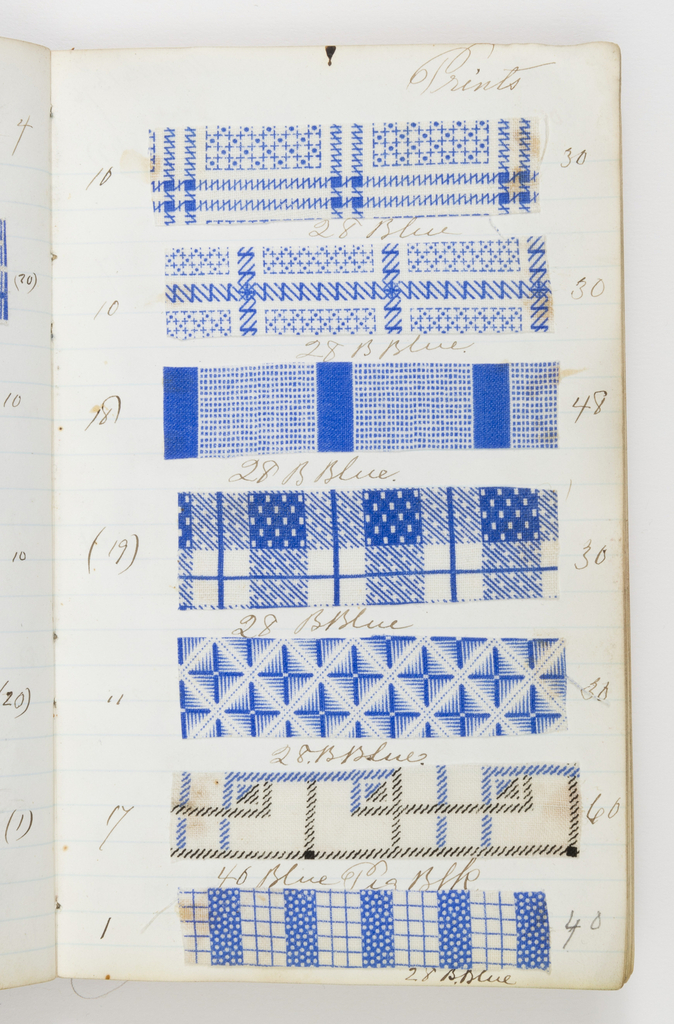 4
(20)
10
10
(20)
(1)
Prints
10 30
28 Blue
10 30
28 B Blue.
18) 48
28 B Blue.
(19) 30
28 B Blue
" 30
28. B Blue.
17 60
40 Blue Pig Blk
1 40
28 B. Blue